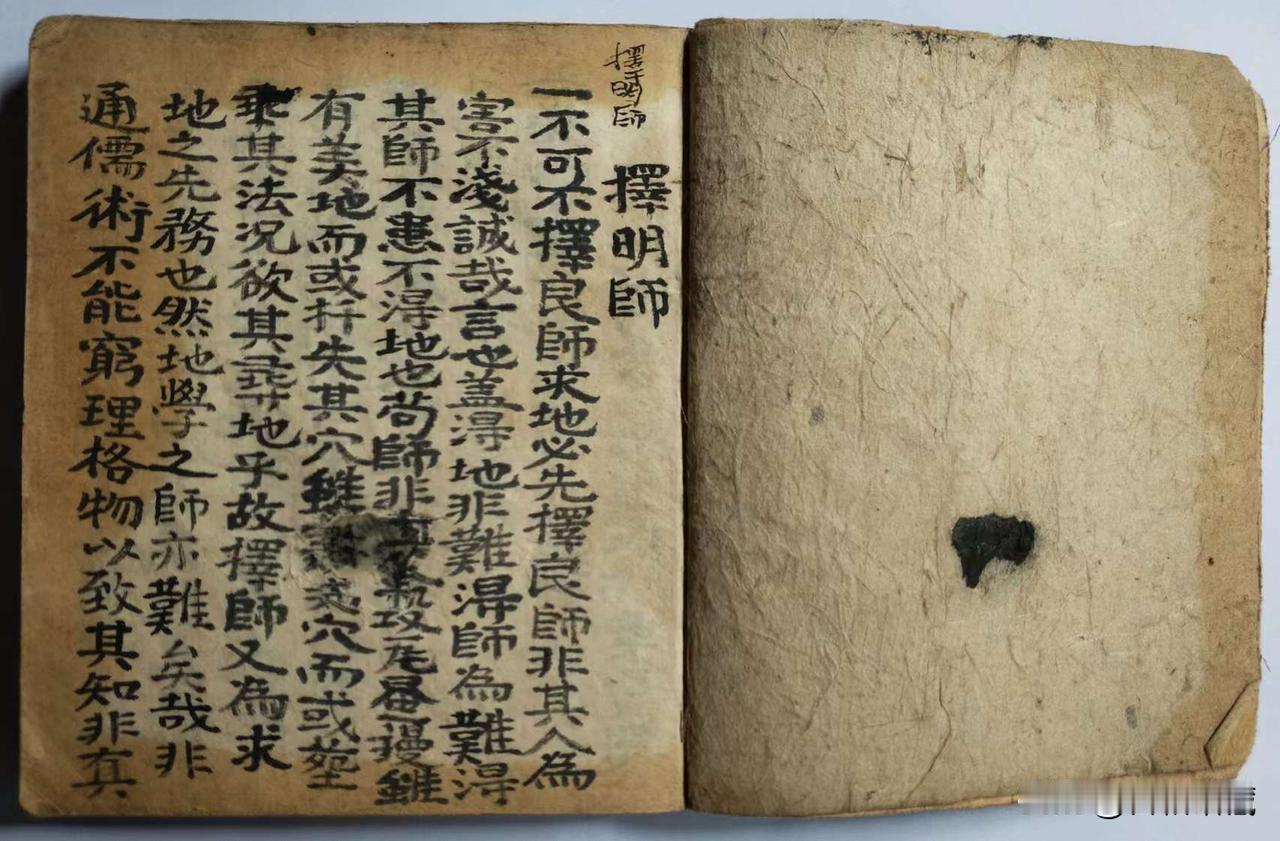 擇明師
擇明師
一不可不擇良師求地必先擇良師非其人為
害不淺誠哉言也盖淂地非難淂師為難淂
其師不患不淂地也苟師非真
有美地而或扦失其穴雖穴而或
乘其法况欲其尋地乎故擇師又為求
地之先務也然地學之師亦難矣哉非
通儒術不能窮理格物以致其知非真